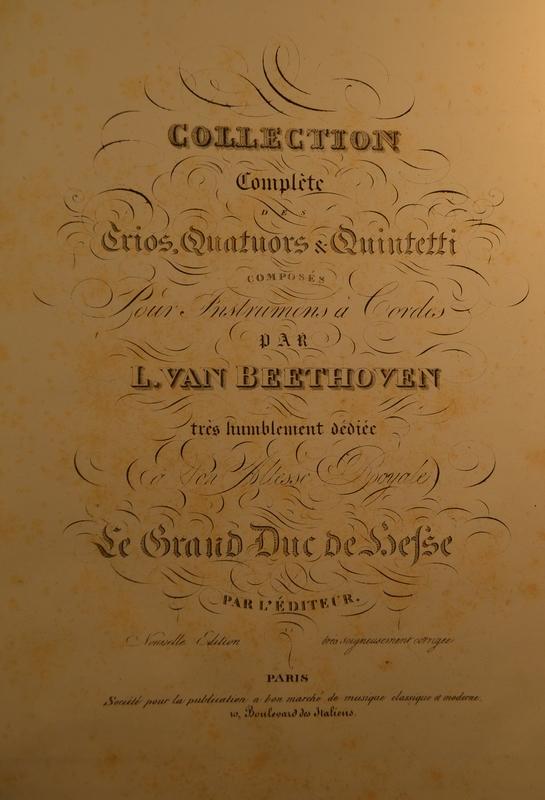 COLLECTION
Complète
DES
Trios, Quatuors & Quintetti
COMPOSÉS
Pour Instrumens à Cordes
PAR
L. VAN BEETHOVEN
très humblement dédiée
à Son Altesse Royale
Le Grand Duc de Hesse
PAR L'ÉDITEUR.
Nouvelle Edition très soigneusement corrigée
PARIS
Société pour la publication a bon marché de musique classique et moderne.
10, Boulevard des Italiens.